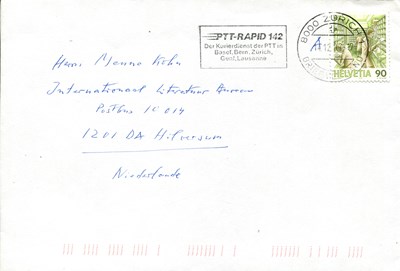 PTT-RAPID 142
Der Kurierdienst der PTT in
Basel, Bern, Zürich,
Genf, Lausanne
8000 ZÜRICH
12
A
HELVETIA 90
Herrn Menno Kohn
Internationaal Literatuur Bureau
Postbus 10 014
1201 DA Hilversum
Niederlande